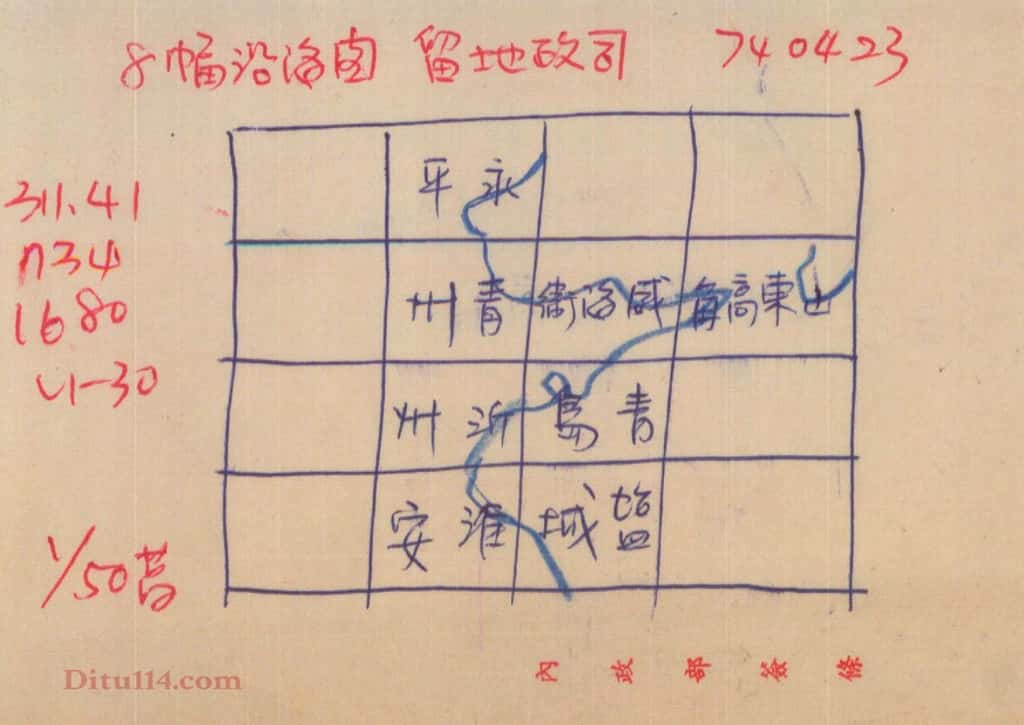 8幅沿海图 留地政司 740423
311.41
n34
1680
v1-30
1/50萬
永平
青州 威海衛 山東高角
沂州 青島
淮安 塩城
內政部簽條
Ditu114.com